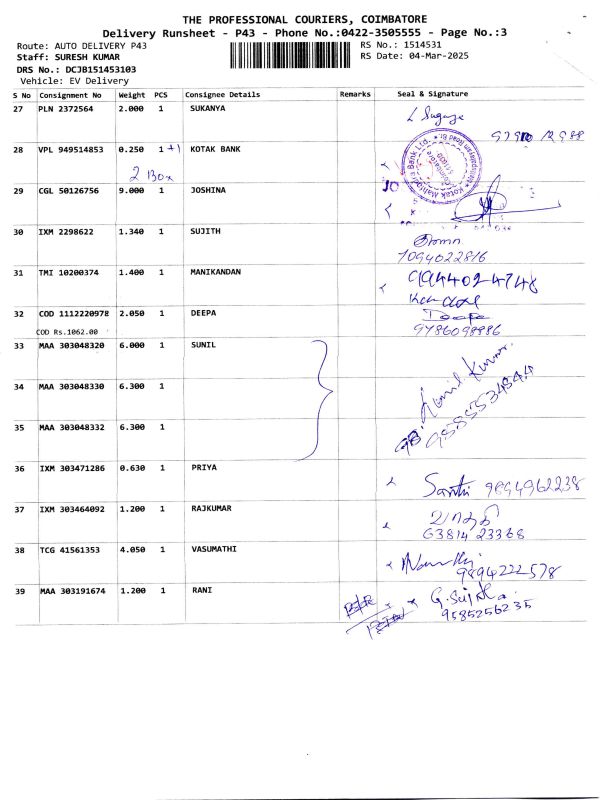 THE PROFESSIONAL COURIERS, COIMBATORE
Delivery Runsheet - P43 - Phone No.:0422-3505555 - Page No.:3
Route: AUTO DELIVERY P43
RS No.: 1514531
Staff: SURESH KUMAR
RS Date: 04-Mar-2025
DRS No.: DCJB151453103
Vehicle: EV Delivery
S No Consignment No Weight PCS Consignee Details Remarks Seal & Signature
27 PLN 2372564 2.000 1 SUKANYA
28 VPL 949514853 0.250 1 +1 KOTAK BANK
2 Box
29 CGL 50126756 9.000 1 JOSHINA
30 IXM 2298622 1.340 1 SUJITH
7094022816
31 TMI 10200374 1.400 1 MANIKANDAN 9944024748
32 COD 1112220978 2.050 1 DEEPA Deepa
COD Rs.1062.00 9786098886
33 MAA 303048320 6.000 1 SUNIL
34 MAA 303048330 6.300 1
35 MAA 303048332 6.300 1
36 IXM 303471286 0.630 1 PRIYA Santhi 9894962238
37 IXM 303464092 1.200 1 RAJKUMAR
6381423368
38 TCG 41561353 4.050 1 VASUMATHI
9894222578
39 MAA 303191674 1.200 1 RANI
9585256235